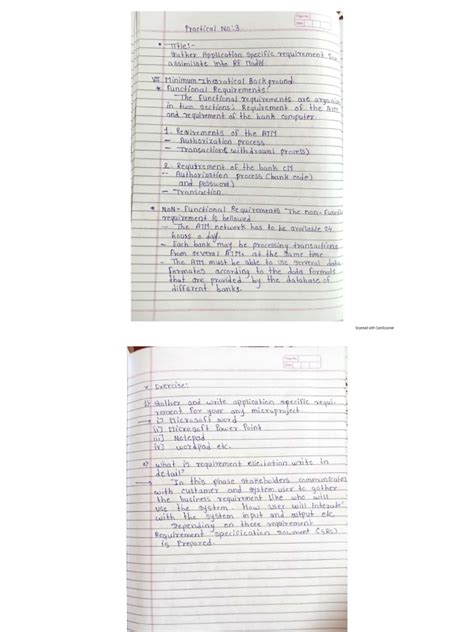 Page No.
Date
Practical No:3
* Title:-
Gather Application specific requirement for
assimilate into RE Model.
VII Minimum Theoratical Background
* Functional Requirements:
The Functional requirements are organise
in two sections; Requirement of the ATM
and requirement of the bank computer.
1. Requirments of the ATM
- Authorization process
- Transactions (withdrawal process)
2. Requirement of the bank
- Authorization process (bank code)
and password)
- Transaction.
* NON-Functional Requirements The non-Functio
requirement is bellowed
- The ATM network has to be available 24
hours a day.
- Each bank may be processing transactions
from several ATMs at the same time.
- The ATM must be able to use several data
formates according to the data formats
that are provided by the database of
different banks.
Scanned with CamScanner
Page No.
Date
x Exercise:
1) Gather and write application specific requi-
rement for your any microproject
i) Microsoft word
ii) Microsoft Power Point
iii) Notepad
iv) wordpad etc.
what is requirement elicitation write in
detail?
→ In this phase stakeholders communicates
with customer and system user to gather
the business requirement like who will
use the system. How user will interate
with the system input and output etc
Depending on these requirement
Requirement specification Document (SRS)
is Prepared.